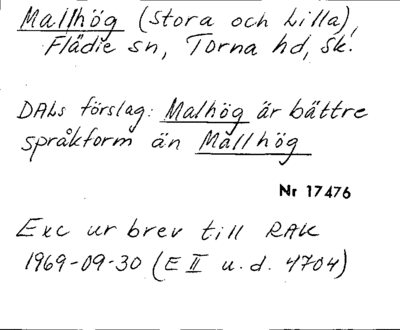 Mallhög (Stora och Lilla),
Flädie sn, Torna hd, Sk.
DALs förslag: Malhög är bättre
språkform än Mallhög
Nr 17476
Exc ur brev till RAK
1969-09-30 (E II u.d. 4704)